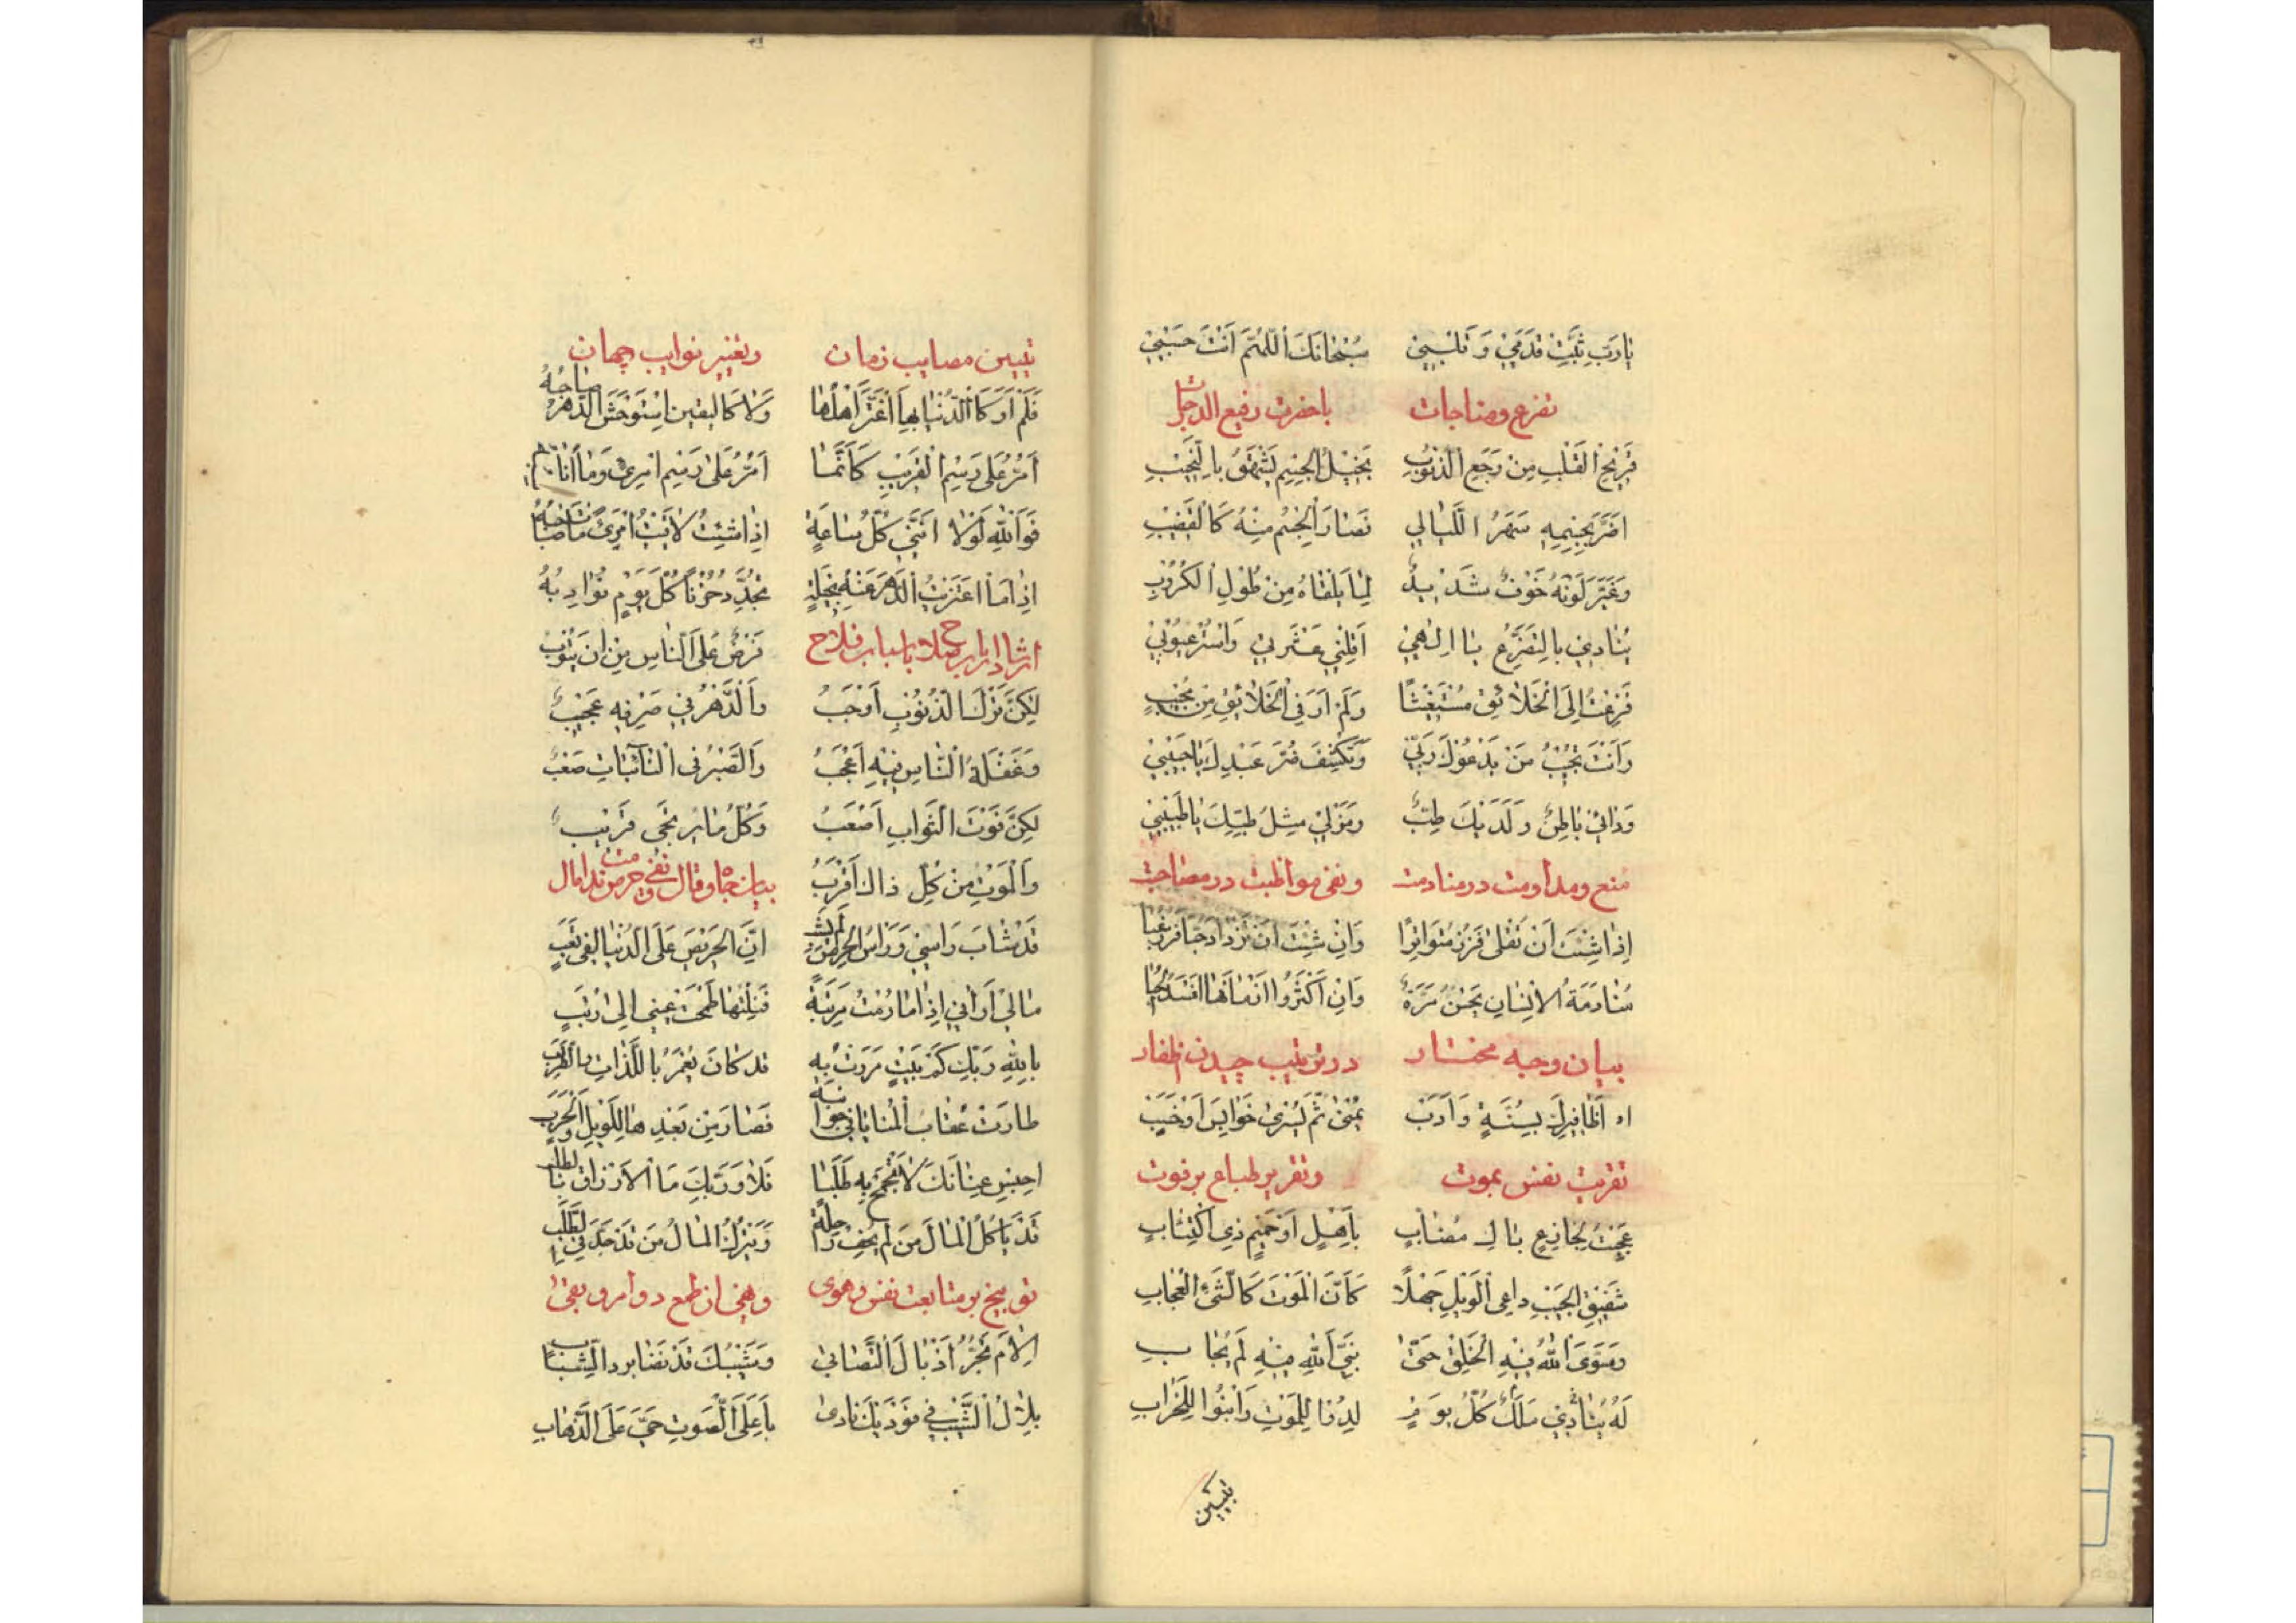 يا رَبِّ ثَبِّتْ قَدَمي وَقَلْبي سُبْحانَكَ اللّهُمَّ اَنْتَ حَسْبي
تضرع ومناجات باحضرت رفيع الدرجات
قَريحُ القَلْبِ مِنْ وَجَعِ الذُّنُوبِ نَحيلُ الجِسْمِ يَشْهَقُ بِالنَّحيبِ
اَضَرَّ بِجِسْمِهِ سَهَرُ اللَّيالي فَصارَ الجِسْمُ مِنْهُ كَالقَضيبِ
وَغَيَّرَ لَوْنَهُ خَوْفٌ شَديدٌ لِما يَلْقاهُ مِنْ طُولِ الكُرُوبِ
يُنادي بِالتَّضَرُّعِ يا اِلهي اَقِلْني عَثْرَتي وَاسْتُرْ عُيُوبي
فَزِعْتُ اِلَى الخَلائِقِ مُسْتَغيثًا وَلَمْ اَرَ فِي الخَلائِقِ مِنْ مُجيبٍ
وَاَنْتَ تُجيبُ مَنْ يَدْعُوكَ رَبّي وَتَكْشِفُ ضُرَّ عَبْدِكَ يا حَبيبي
وَدائي باطِنٌ وَلَدَيْكَ طِبٌّ وَمَنْ لي مِثْلُ طِبِّكَ يا طَبيبي
منع ومداومت در منادمت ونفى مواظبت در مصاحبت
اِذا شِئْتَ اَنْ تُقْلى فَزُرْ مُتَواتِرًا وَاِنْ شِئْتَ اَنْ تَزْدادَ حُبًّا فَزُرْ غِبًّا
مُنادَمَةُ الاِنْسانِ تَحْسُنُ مَرَّةً وَاِنْ اَكْثَرُوا اِدْمانَها اَفْسَدَ الحُبّا
بيان وجه مختار در ترتيب چيدن اظفار
اَظافيرِكَ بِسُنَّةٍ وَاَدَبْ يُمْنى ثُمَّ يُسْرى خَوابِسْ اَوْخَسَبْ
تقريب نفس بموت وتقرير طباع بر فوت
عَجِبْتُ لِجازِعٍ باكٍ مُصابٍ بِاَهْلٍ اَوْ حَميمٍ ذِي اكْتِئابِ
شَقيقِ الجَيْبِ داعِي الوَيْلِ جَهْلًا كَاَنَّ المَوْتَ كَالشَّيءِ العُجابِ
وَسَوَّى اللّهُ فيهِ الخَلْقَ حَتّى نَبِيَّ اللّهِ مِنْهِ لَمْ يُحابِ
لَهُ يُنادي مَلَكٌ كُلَّ يَوْمٍ لِدُوا لِلْمَوْتِ وَابْنُوا لِلْخَرابِ
تبيين
تبيين مصايب زمان وتغيير نوايب جهان
فَلَمْ اَرَ كَالدُّنْيا بِها اغْتَرَّ اَهْلُها وَلا كَاليَقينِ اسْتَوْحَشَ الدَّهْرُ صاحِبُهُ
اَمُرُّ عَلى رَسْمِ القَريبِ كَاَنَّما اَمُرُّ عَلى رَسْمِ امْرِئٍ وَما اَنا
فَوَاللّهِ لَوْلا اَنَّني كُلَّ ساعَةٍ اِذا شِئْتُ لاقَيْتُ امْرَءً ماتَ صاحِبُهُ
اِذا مَا اعْتَرَيْتُ الدَّهْرَ عَنْهُ بِحيلَةٍ تُجَدِّدُ حُزْنًا كُلَّ يَوْمٍ نَوادِبُهُ
ارشاد ارباب صلاح باسباب فلاح فَرْضٌ عَلَى النّاسِ مِنْ اَنْ يَتُوبُ
لكِنَّ تَرْكَ الذُّنُوبِ اَوْجَبُ وَالدَّهْرُ في صَرْفِهِ عَجيبٌ
وَغَفْلَةُ النّاسِ فيهِ اَعْجَبُ وَالصَّبْرُ فِي النّائِباتِ صَعْبٌ
لكِنَّ فَوْتَ الثَّوابِ اَصْعَبُ وَكُلُّ ما يُرْتَجى قَريبٌ
وَالْمَوْتُ مِنْ كُلِّ ذاكَ اَقْرَبُ بيان جاه وقال ونفى حرص مذمت مال
قَدْ شابَ رَاْسي وَرَاْسُ الحِرْصِ لَمْ يَشِبْ اِنَّ الحَريصَ عَلَى الدُّنْيا لَفي تَعَبٍ
مالي اَراني اِذا ما رُمْتُ مَرْتَبَةً فَنِلْتُها طَمِحَتْ عَيْني اِلى رُتَبٍ
بِاللّهِ رَبِّكَ كَمْ بَيْتٍ مَرَرْتَ بِهِ قَدْ كانَ يُعْمَرُ بِاللَّذّاتِ وَالطَّرَبِ
طارَتْ عُقابُ المَنايا في جَوانِبِهِ فَصارَ مِنْ بَعْدِها لِلْوَيْلِ وَالحَرَبِ
اِحْبِسْ عِنانَكَ لا تَجْمَحْ بِهِ طَلَبًا فَلا وَرَبِّكَ مَا الاَرْزاقُ بِالطَّلَبِ
قَدْ يَاْكُلُ المالَ مَنْ لَمْ يُحْفِ راحِلَةً وَيَتْرُكُ المالَ مَنْ قَدْ جَدَّ فِي الطَّلَبِ
توبيخ بر متابعت نفس وهوى ونهى از طمع دوام وبقى
اِلامَ تَجُرُّ اَذْيالَ التَّصابي وَشَيْبُكَ قَدْ نَضا بُرْدَ الشَّبابِ
بِلالُ الشَّيْبِ في فَوْدَيْكَ نادى بِاَعْلَى الصَّوْتِ حَيَّ عَلَى الذَّهابِ